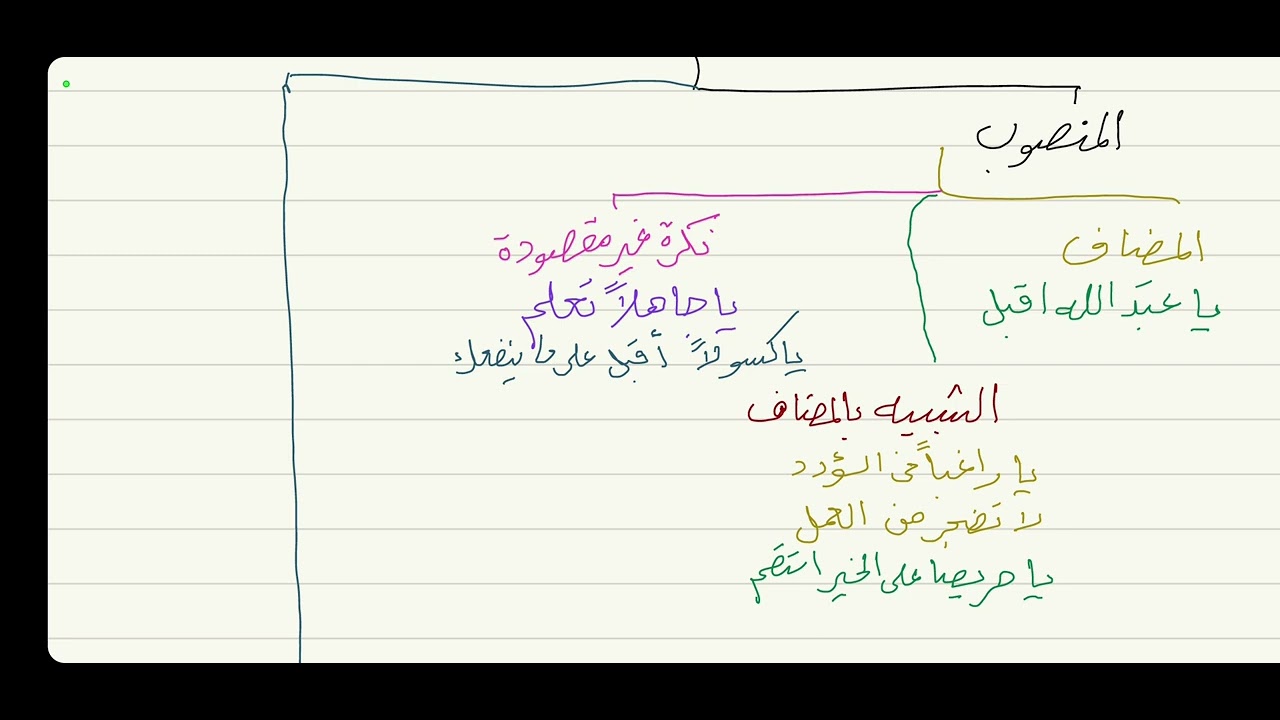 المنصوب
المضاف
يا عبدَ الله اقبل
نكرة غير مقصودة
يا جاهلاً تَعلم
يا كسولاً أقبل على ما ينفعك
الشبيه بالمضاف
يا راغباً في السؤدد
لا تَضجر من العمل
يا حريصا على الخير استقم